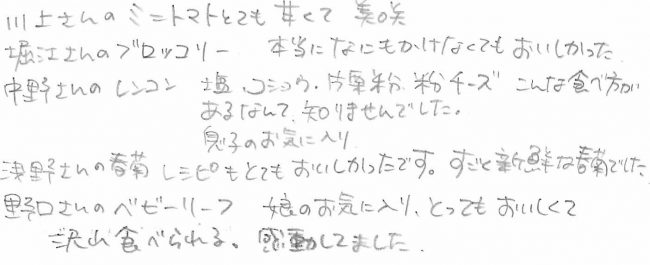 川上さんのミニトマトとても甘くて美味
堀江さんのブロッコリー 本当になにもかけなくてもおいしかった
中野さんのレンコン 塩、コショウ、片栗粉、粉チーズ こんな食べ方が
あるなんて、知りませんでした。
息子のお気に入り
浅野さんの春菊 レシピもとてもおいしかったです。すごく新鮮な春菊でした
野口さんのベビーリーフ 娘のお気に入り、とってもおいしくて
沢山食べられる。感動してました。